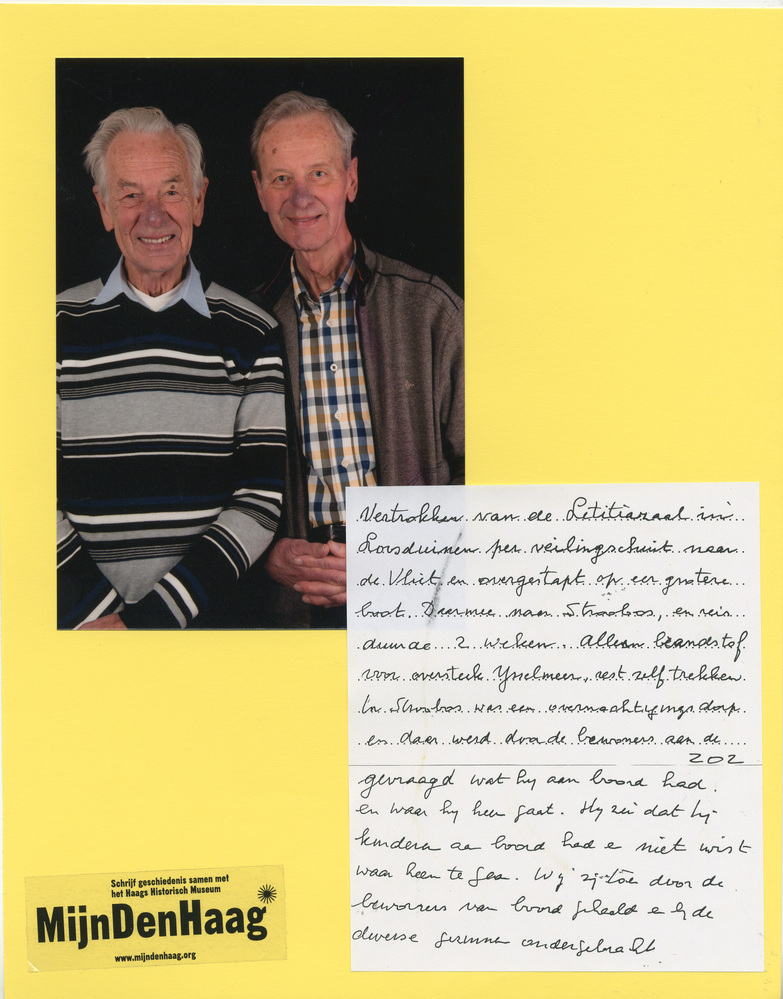 Vertrokken van de Letitiazaal in
Loosduinen per veilingschuit naar
de Vliet en overgestapt op een grotere
boot. Daarmee naar Stroobos, en reis
duurde 2 weken. Alleen brandstof
voor oversteek Ysselmeer, rest zelf trekken.
In Stroobos was een overnachtigings dorp
en daar werd door de bewoners aan de
202
gevraagd wat hy aan boord had.
en waar hy heen gaat. Hy zei dat hy
kinderen aan boord had e niet wist
waar heen te gaan. Wy zijn toen door de
bewoners van boord gehaald e by de
diverse gezinnen ondergebracht
Schrijf geschiedenis samen met
het Haags Historisch Museum
MijnDenHaag
www.mijndenhaag.org